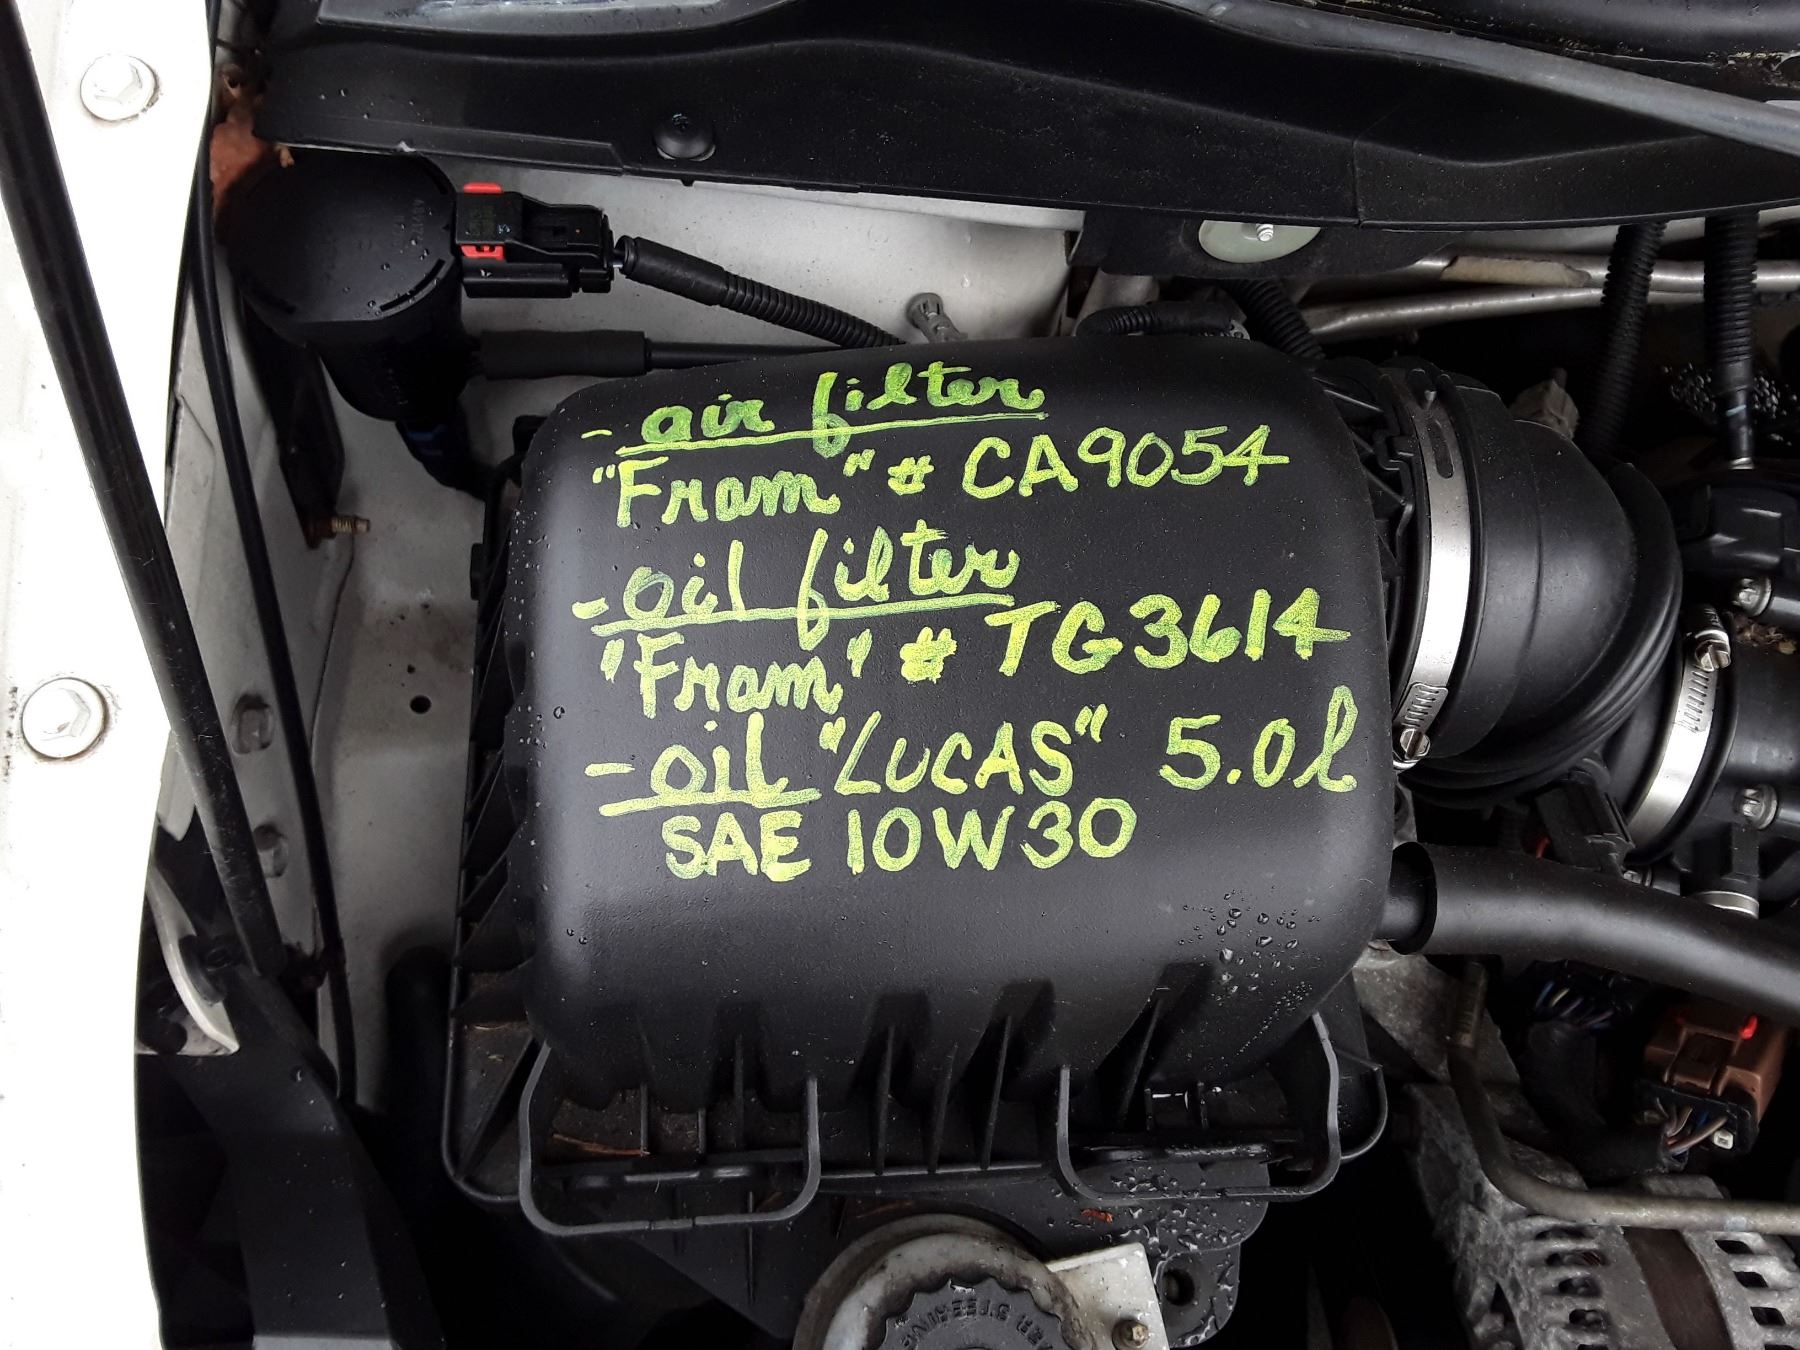 - air filter
"Fram" # CA9054
- oil filter
"Fram" # TG3614
- oil "LUCAS" 5.0l
SAE 10W30